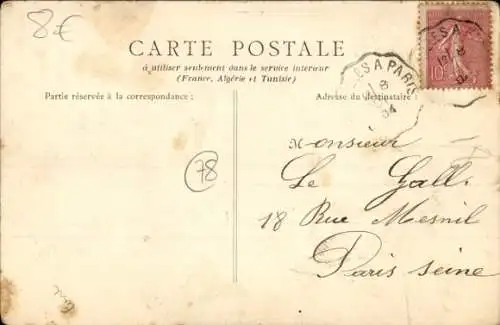 8€
CARTE POSTALE
à utiliser seulement dans le service intérieur
(France, Algérie et Tunisie)
Partie réservée à la correspondance :
Adresse du destinataire :
ES A PARIS
8
04
10
ES A
78
Monsieur
Le Gall.
18 Rue Mesnil
Paris Seine